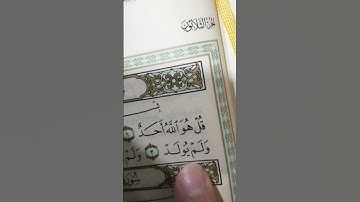 الجزء الثلاثون
بِسْـ
قُلْ هُوَ ٱللَّهُ أَحَدٌ ١
وَلَمْ يُولَدْ ٣ وَلَمْ
سُورَ